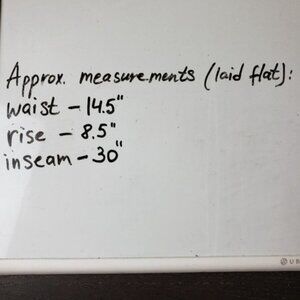 Approx. measurements (laid flat):
waist - 14.5"
rise - 8.5"
inseam - 30"